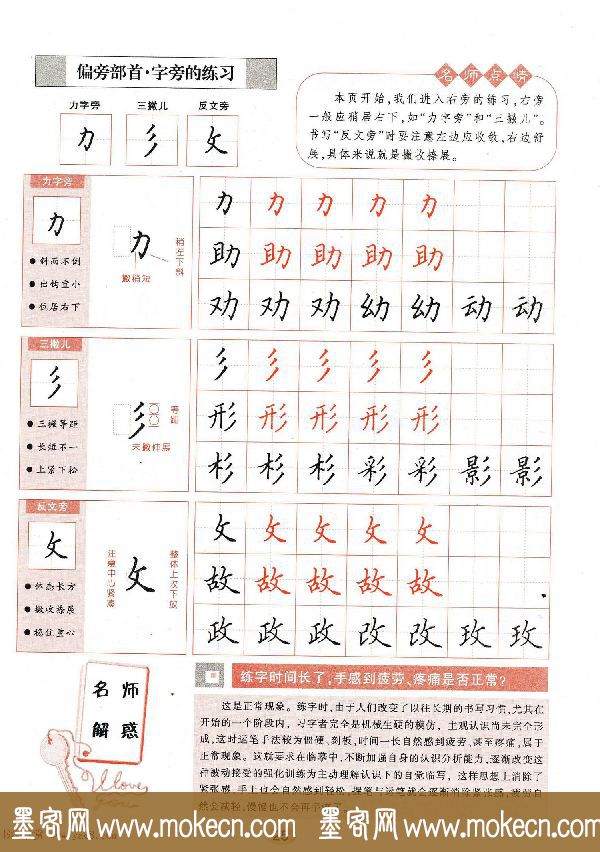 偏旁部首·字旁的练习
力字旁 三撇儿 反文旁
力 彡 攵
名师点睛
本页开始,我们进入右旁的练习,右旁
一般应稍居右下,如“力字旁”和“三撇儿”。
书写“反文旁”时要注意左边应收敛,右边舒
展,具体来说就是撇收捺展。
力字旁
力
斜而不倒
出钩宜小
位居右下
力
稍左下斜
撇稍短
力 力 力 力 力
助 助 助 助 助
劝 劝 劝 幼 幼 动 动
三撇儿
彡
三撇等距
长短不一
上紧下松
彡
等距
末撇伸展
彡 彡 彡 彡 彡
形 形 形 形 形
杉 杉 杉 彩 彩 影 影
反文旁
攵
体态长方
撇收捺展
稳住重心
攵
注意中心紧凑
整体上收下放
攵 攵 攵 攵 攵
故 故 故 故 故
政 政 政 改 改 玫 玫
名师
解惑
I love you
练字时间长了,手感到疲劳、疼痛是否正常?
这是正常现象。练字时,由于人们改变了以往长期的书写习惯,尤其在
开始的一个阶段内,习字者完全是机械生硬的模仿,主观认识尚未完全形
成,这时运笔手法较为僵硬、刻板,时间一长自然感到疲劳、甚至疼痛,属于
正常现象。这就要求在临摹中,不断加强自身的认识分析能力,逐渐改变这
种被动接受的强化训练为主动理解认识下的自觉临写,这样思想上消除了
紧张感,手上也会自然感到轻松,
墨客网 www.mokecn.com 墨客网 www.mokecn.com